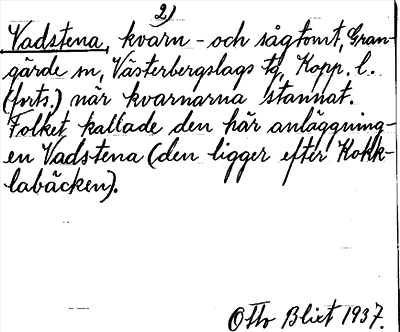 2)
Vadstena, kvarn- och sågtomt, Gran-
gärde sn, Västerbergslags tg, Kopp. l.
(forts.) när kvarnarna stannat.
Folket kallade den här anläggning-
en Vadstena (den ligger efter Kokk-
labäcken).
Otto Blixt 1937.